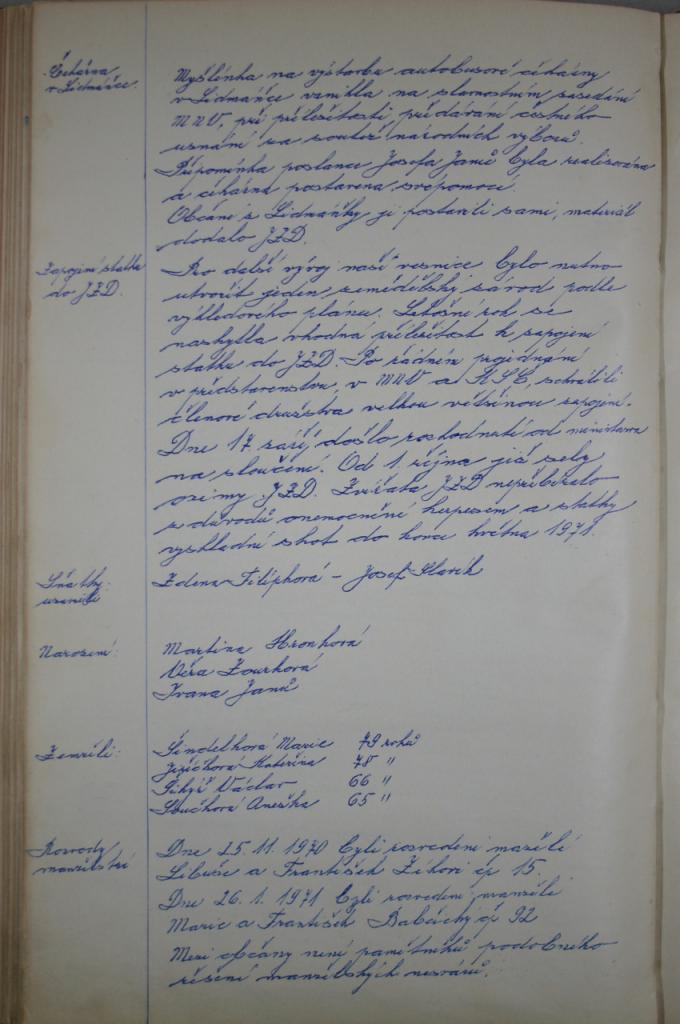 Čekárna
v Lidmáňce.
Myšlénka na výstavbu autobusové čekárny
v Lidmáňce vznikla na slavnostním zasedání
MNV, při příležitosti předávání čestného
uznání za soutěž národních výborů.
Připomínka poslance Josefa Janů byla realisována
a čekárna postavena svépomocí.
Občané z Lidmáňky ji postavili sami, materiál
dodalo JZD.
Zapojení statku
do JZD.
Pro další vývoj naší vesnice bylo nutno
utvořit jeden zemědělský závod podle
výhledového plánu. Letošní rok se
naskytla vhodná příležitost k zapojení
statku do JZD. Po řádném projednání
v představenstvu, v MNV a KSČ, schválili
členové družstva velkou většinou zapojení.
Dne 17. září došlo rozhodnutí od ministra
na sloučení. Od 1. října již sely
ozimy JZD. Zvířata JZD nepřebíralo
z důvodů onemocnění herpesem a statky
vyskladní skot do konce května 1971.
Sňatky
uzavřeli
Zdena Filípková - Josef Slavík
Narození:
Martina Hronková
Věra Zourková
Ivana Janů
Zemřeli:
Šindelková Marie 79 roků
Jiříčková Kateřina 78 "
Václav 66 "
Anežka 65 "
Rozvody
manželství
Dne 25. 11. 1970 byli rozvedeni manželé
Libuše a František Zíkovi čp 15.
Dne 26. 1. 1971 byli rozvedeni manželé
Marie a František čp 92
Mezi občany není pamětníků podobného
řešení manželských nesvárů.